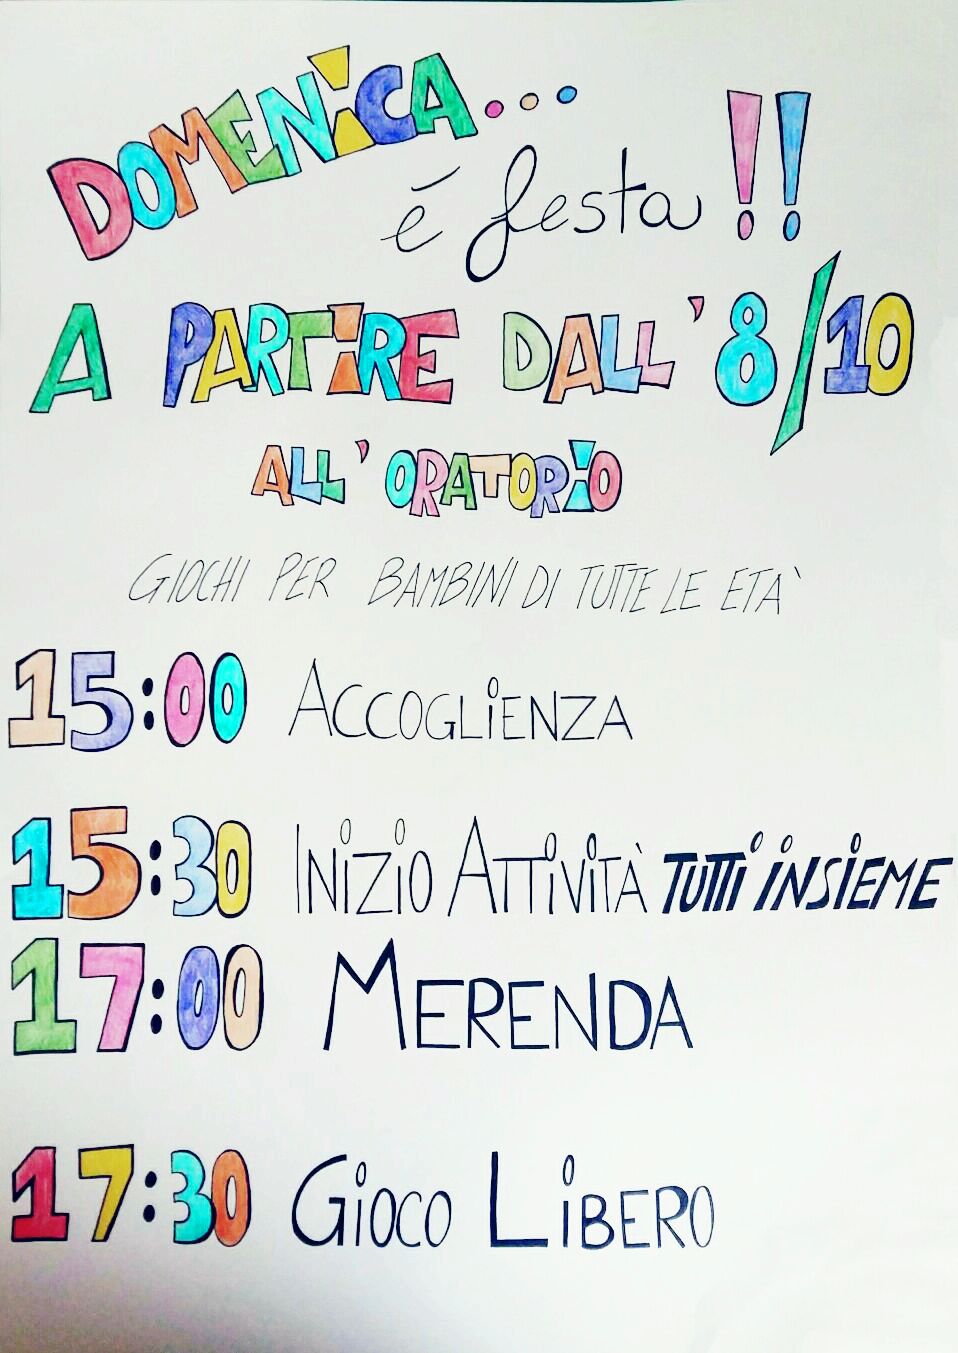 DOMENiCA...
é festa!!
A PARTiRE DALL'8/10
ALL'ORATORiO
GIOCHI PER BAMBINI DI TUTTE LE ETA`
15:00 ACCOGLiENZA
15:30 INiZiO ATTiViTÀ TUTTi iNSiEME
17:00 MERENDA
17:30 GiOCO LiBERO